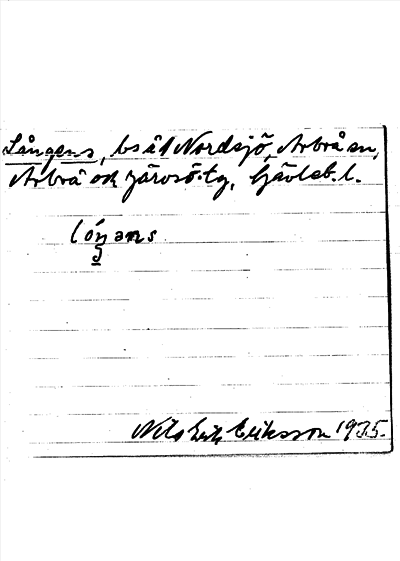 Långens, bs å Nordsjö, Arbrå sn,
Arbrå ok Järvsö tg, Gävleb. l.
lóŋans
Nils Erik Eriksson 1935.